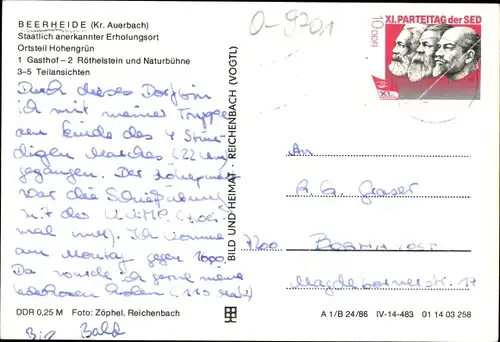 BEERHEIDE (Kr. Auerbach)
Staatlich anerkannter Erholungsort
Ortsteil Hohengrün
1 Gasthof – 2 Röthelstein und Naturbühne
3–5 Teilansichten
O-9701
XI. PARTEITAG der SED
10 DDR
XI.
Durch dieses Dorf bin
ich mit meiner Truppe
am Ende des 4 Stün-
digen Marsches (22 km)
gegangen. Der Höhepunkt
war die Schießübung
mit der
mal
Ich komme
am Montag gegen 1000.
Da ich gerne meine
(110 Mark)
Bis Bald
BILD UND HEIMAT · REICHENBACH (VOGTL)
An
R. G. Graser
7200 BORNA /OST
Magdeborner str. 17
DDR 0,25 M Foto: Zöphel, Reichenbach
A 1/B 24/86 IV-14-483 01 14 03 258